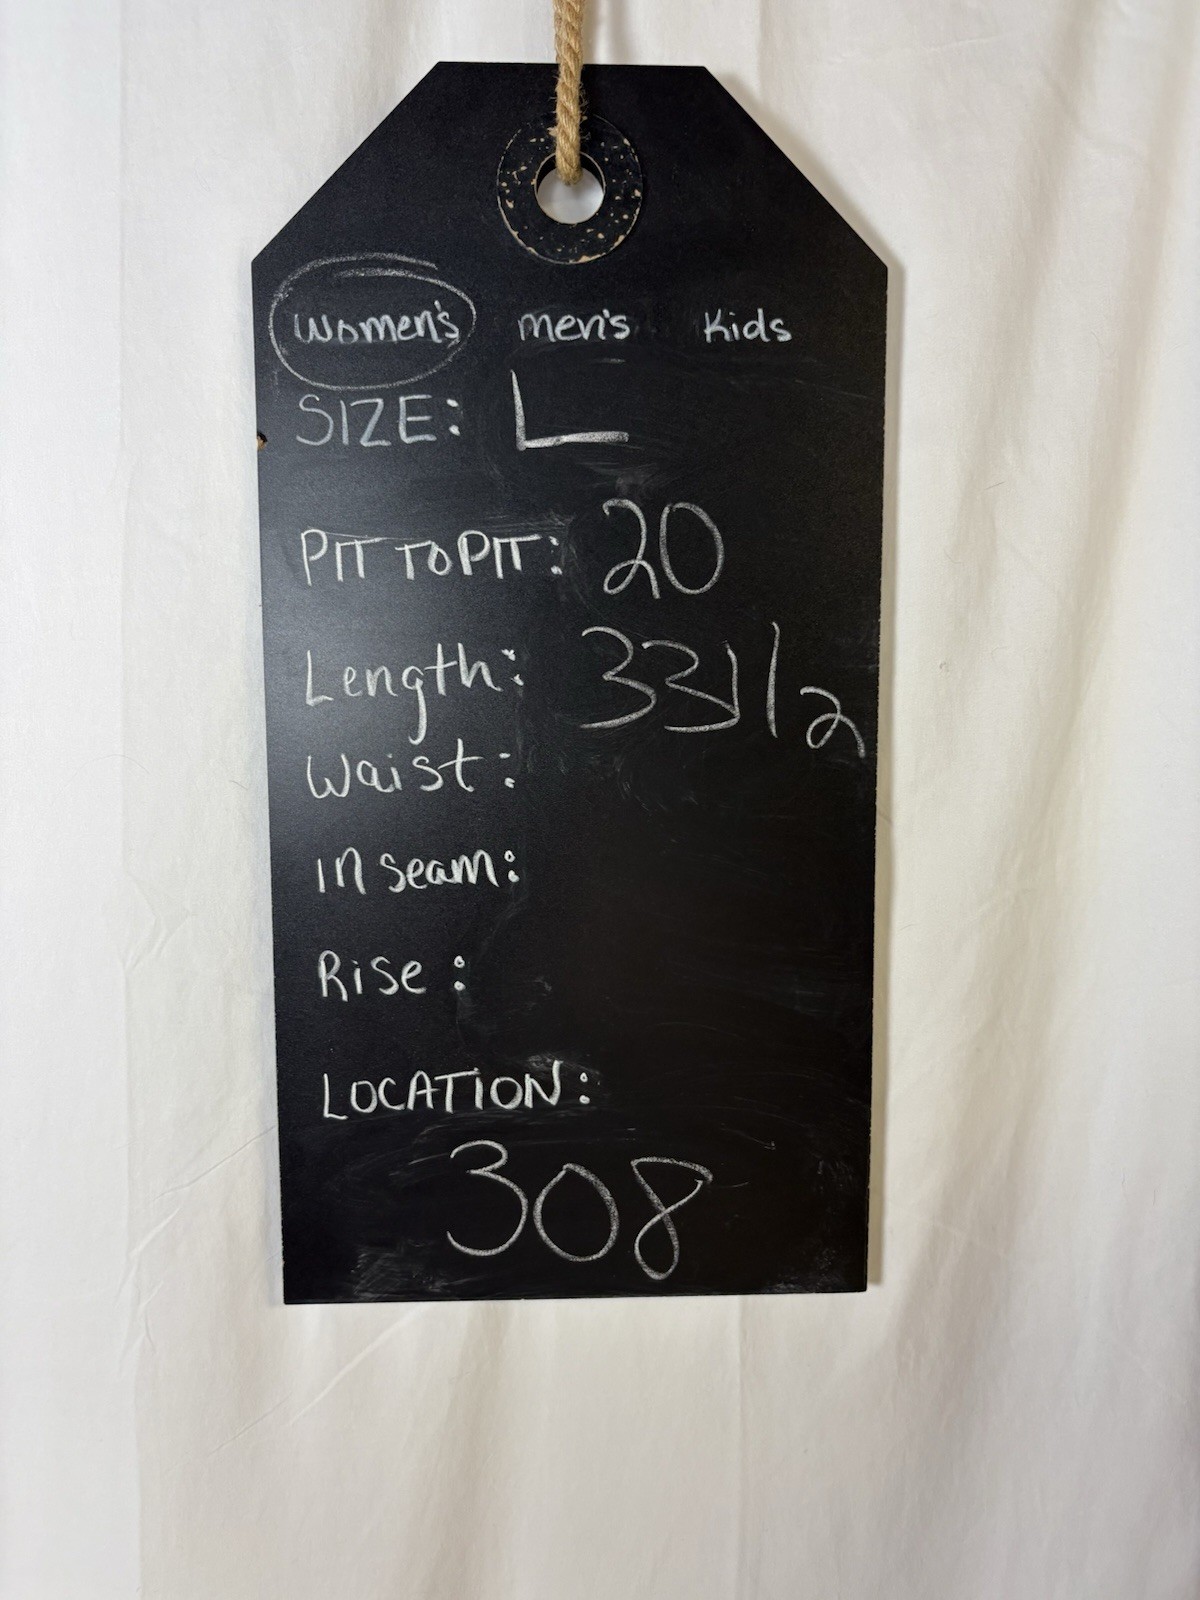 Women's men's Kids
SIZE: L
PIT TO PIT: 20
Length: 33 1/2
Waist:
in seam:
Rise:
LOCATION:
308